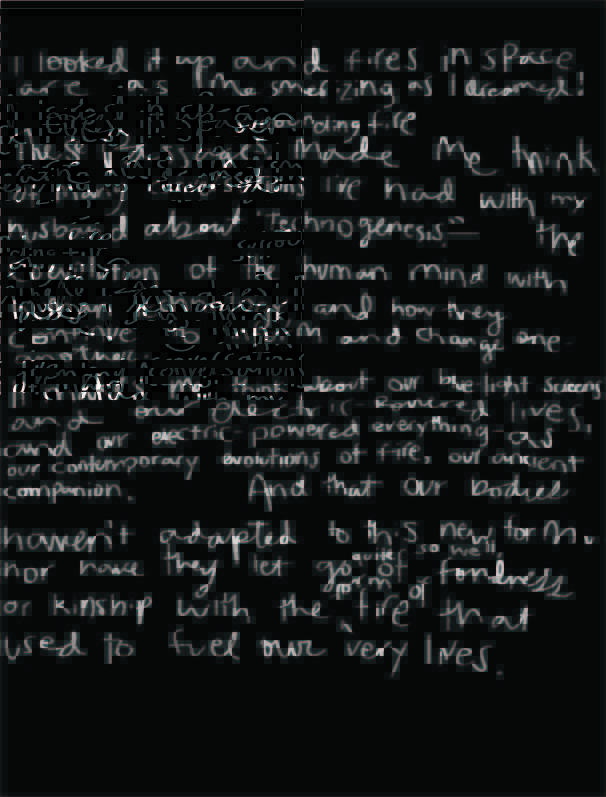 I looked it up and fires in space
are as mesmerizing as I dreamed!
surrounding fire
These passages made me think
of many conversations I've had with my
husband about Technogenesis — the
Coevolution of the human mind with
and how they
continue to and change one
another.
It makes me think about our blue light screens
and our electric powered lives,
and our electric powered everything - as
our contemporary evolutions of fire, our ancient
companion. And that our bodies
haven't adapted to this new form
quite so well,
nor have they let go of fondness
or kinship with the fire that
used to fuel our very lives.